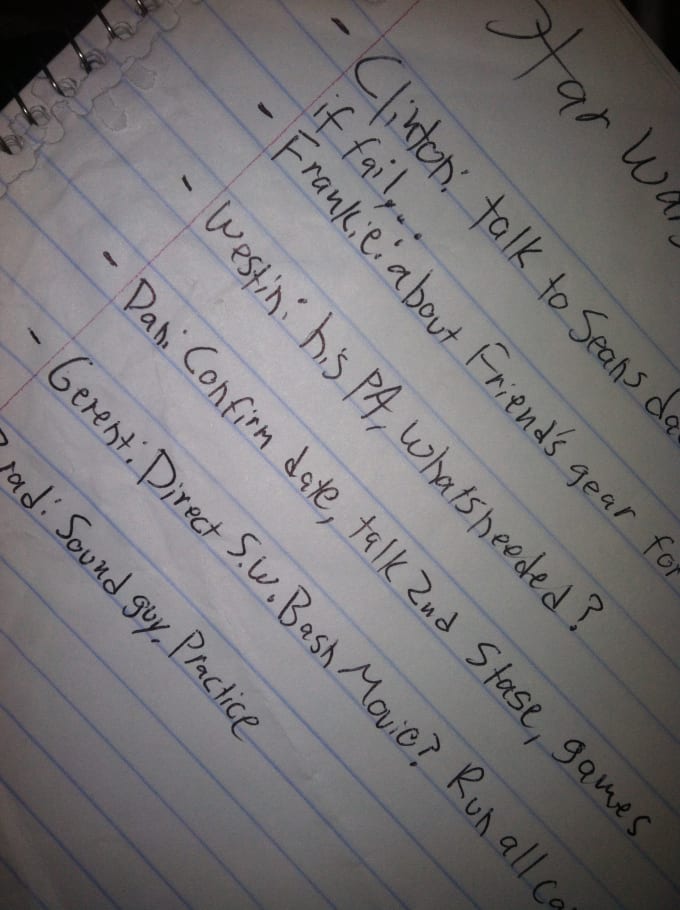 Star Wars
- Clinton: talk to Seans da
if fail...
- Frankie: about Friend's gear for
- Westin: his PA, whats needed?
- Dan: Confirm date, talk 2nd Stase, games
- Gerent: Direct S.W. Bash Movie? Run all Ca
Brad: Sound guy. Practice